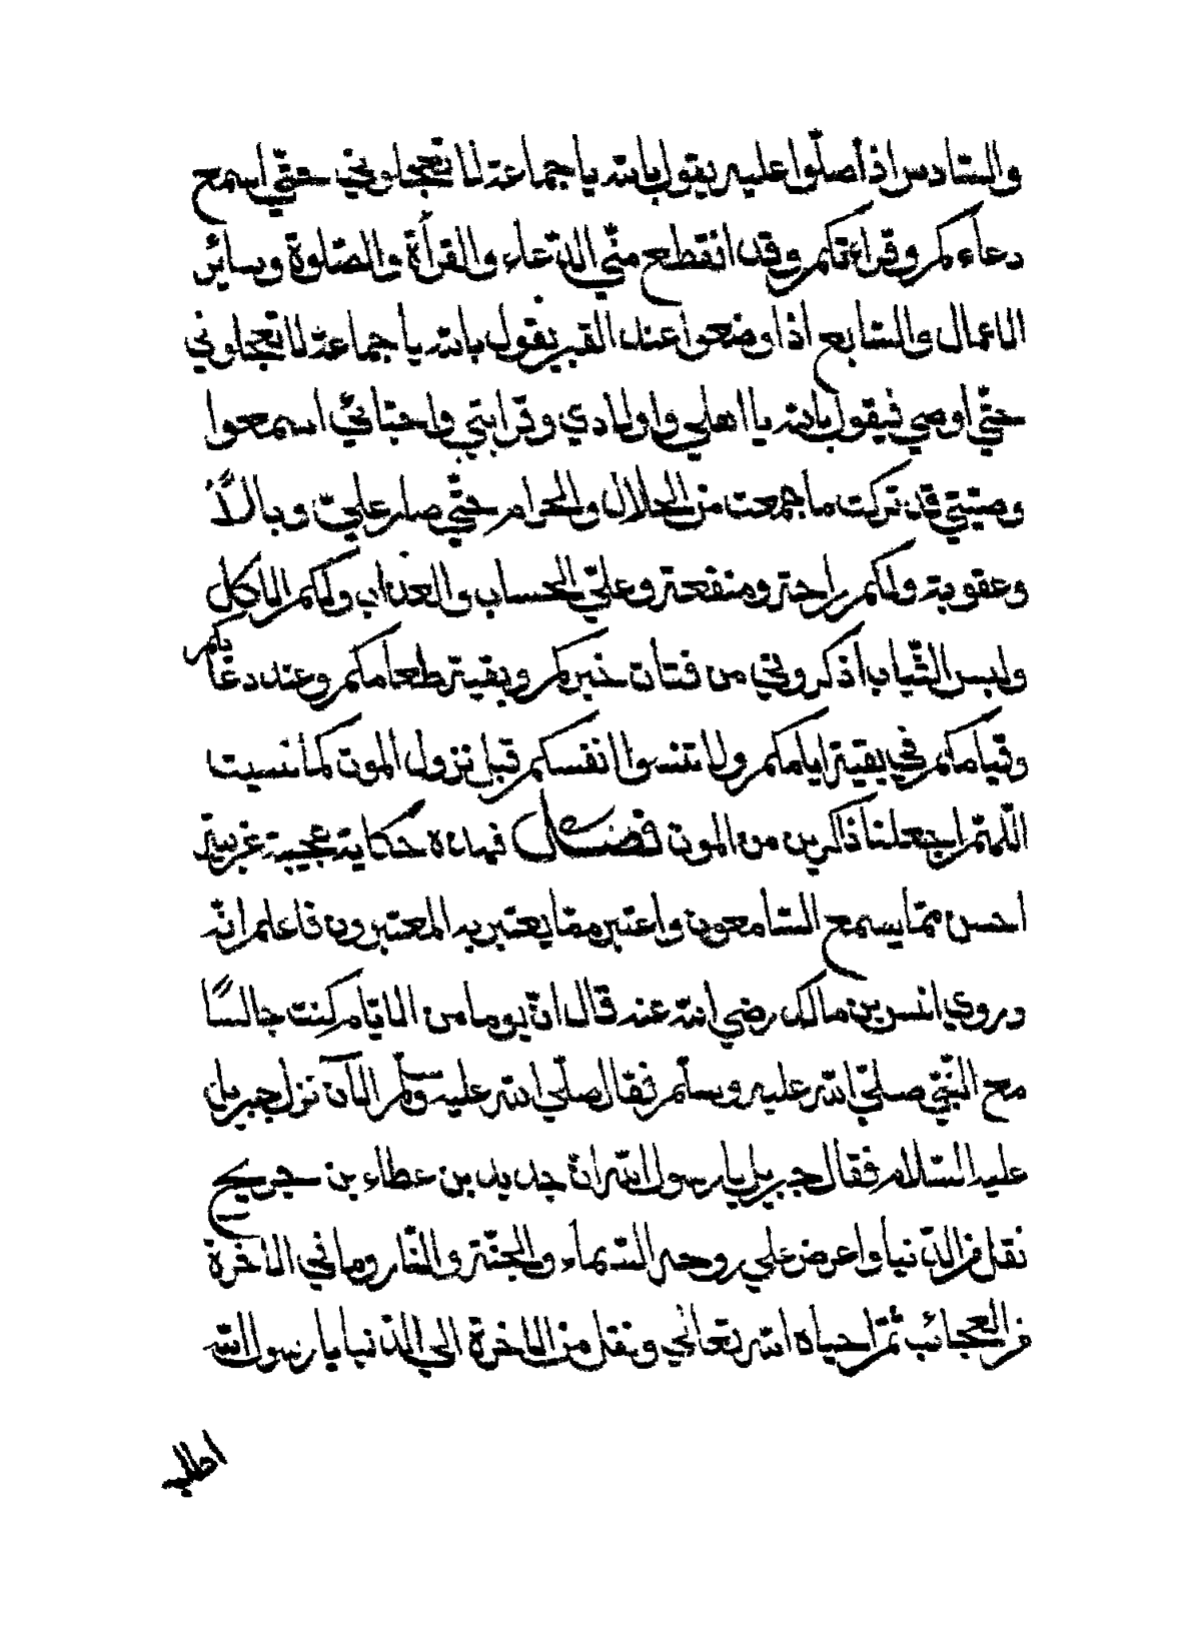 والسّادس اذا صلّوا عليه يقول بالله يا جماعة لا تعجلوني حتّي اسمع
دعاءكم وقراءتكم وقد انقطع منّي الدّعاء والقرأة والصّلوة وسائر
الاعمال والسّابع اذا وضعوا عند القبر يقول بالله يا جماعة لا تعجلوني
حتّي اوصي فيقول بالله يا اهلي واولادي وقرابتي واحبّائي اسمعوا
وصيّتي قد تركت ما جمعت من الحلال والحرام حتّي صار عليّ وبالاً
وعقوبة ولكم راحة ومنفعة وعليّ الحساب والعذاب ولكم الاكل
ولبس الثّياب اذكروني من فتات خبزكم وبقية طعامكم وعند دعائكم
وقيامكم في بقية ايامكم ولا تنسوا انفسكم قبل نزول الموت كما نسيت
اللّهمّ اجعلنا ذاكرين من الموت فصل فيه هذه حكاية عجيبة غريبة
احسن ممّا يسمع السّامعون واعتبر ممّا يعتبر به المعتبرون فاعلم انّه
وروي انس بن مالك رضي الله عنه قال انّ يوما من الايّام كنت جالسًا
مع النّبيّ صلّي الله عليه وسلّم فقال صلّي الله عليه وسلّم الآن نزل جبريل
عليه السّلام فقال جبريل يا رسول الله انّ جديد بن عطاء بن جريج
نقل من الدّنيا واعرض علي روحه السّماء والجنّة والنّار وما في الاخرة
من العجائب ثمّ احياه الله تعالي ونقل من الاخرة الي الدّنيا يا رسول الله
اطلبه